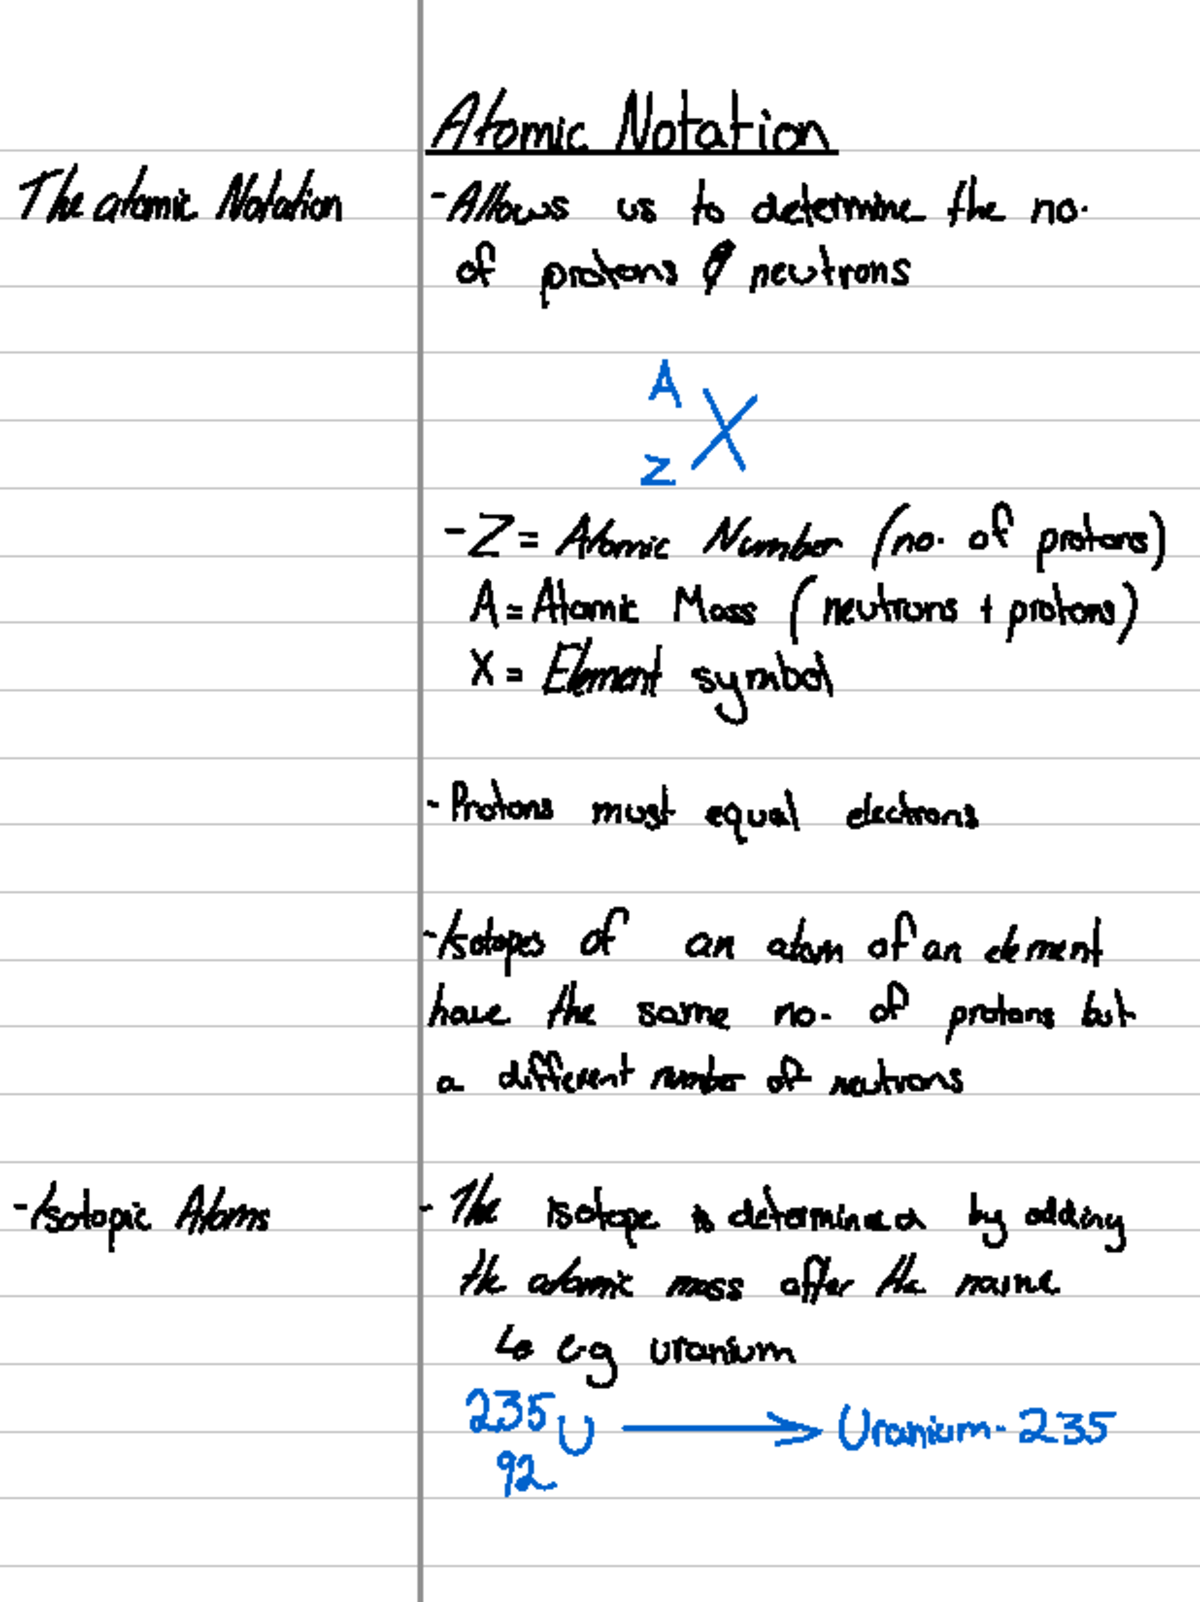 Atomic Notation
The atomic Notation
- Allows us to determine the no.
of protons & neutrons
A
X
Z
- Z = Atomic Number (no. of protons)
A = Atomic Mass (neutrons + protons)
X = Element symbol
- Protons must equal electrons
- Isotopes of an atom of an element
have the same no. of protons but
a different number of neutrons
- Isotopic Atoms
- The isotope is determined by adding
the atomic mass after the name
↳ e.g uranium
235
U → Uranium-235
92